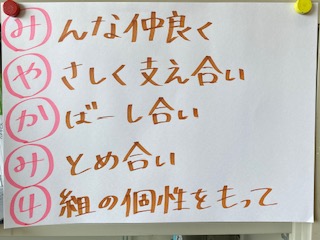 みんな仲良く
やさしく支え合い
かばーし合い
みとめ合い
4組の個性をもって